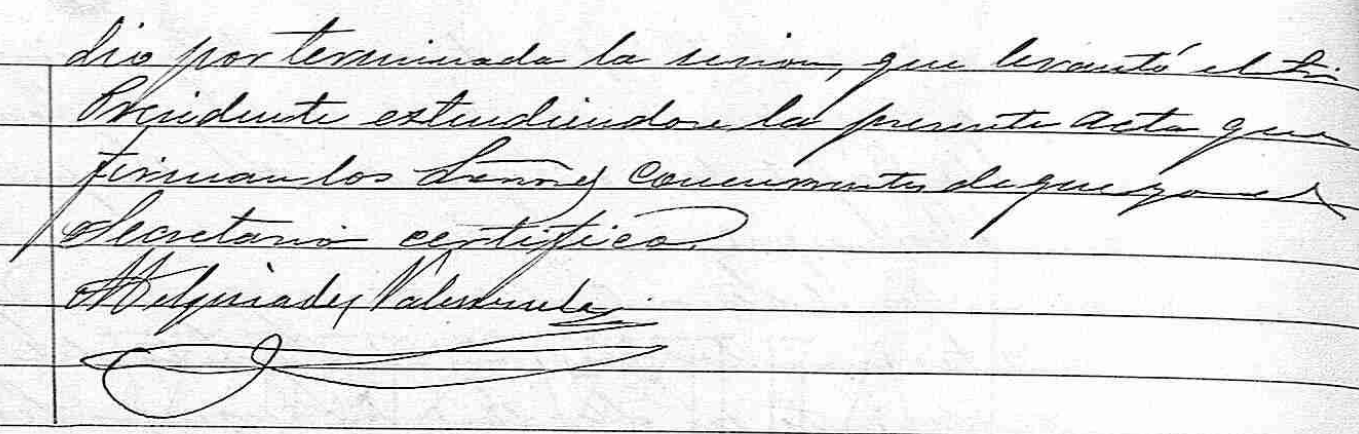 dio por terminada la sesion, que levantó el Sr.
Presidente extendiendose la presente acta que
firman los Señores Concurrentes de que yo el
Secretario certifico.
Melquiades Valenzuela